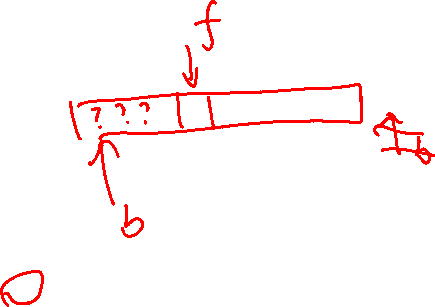 f
? ? ?
b